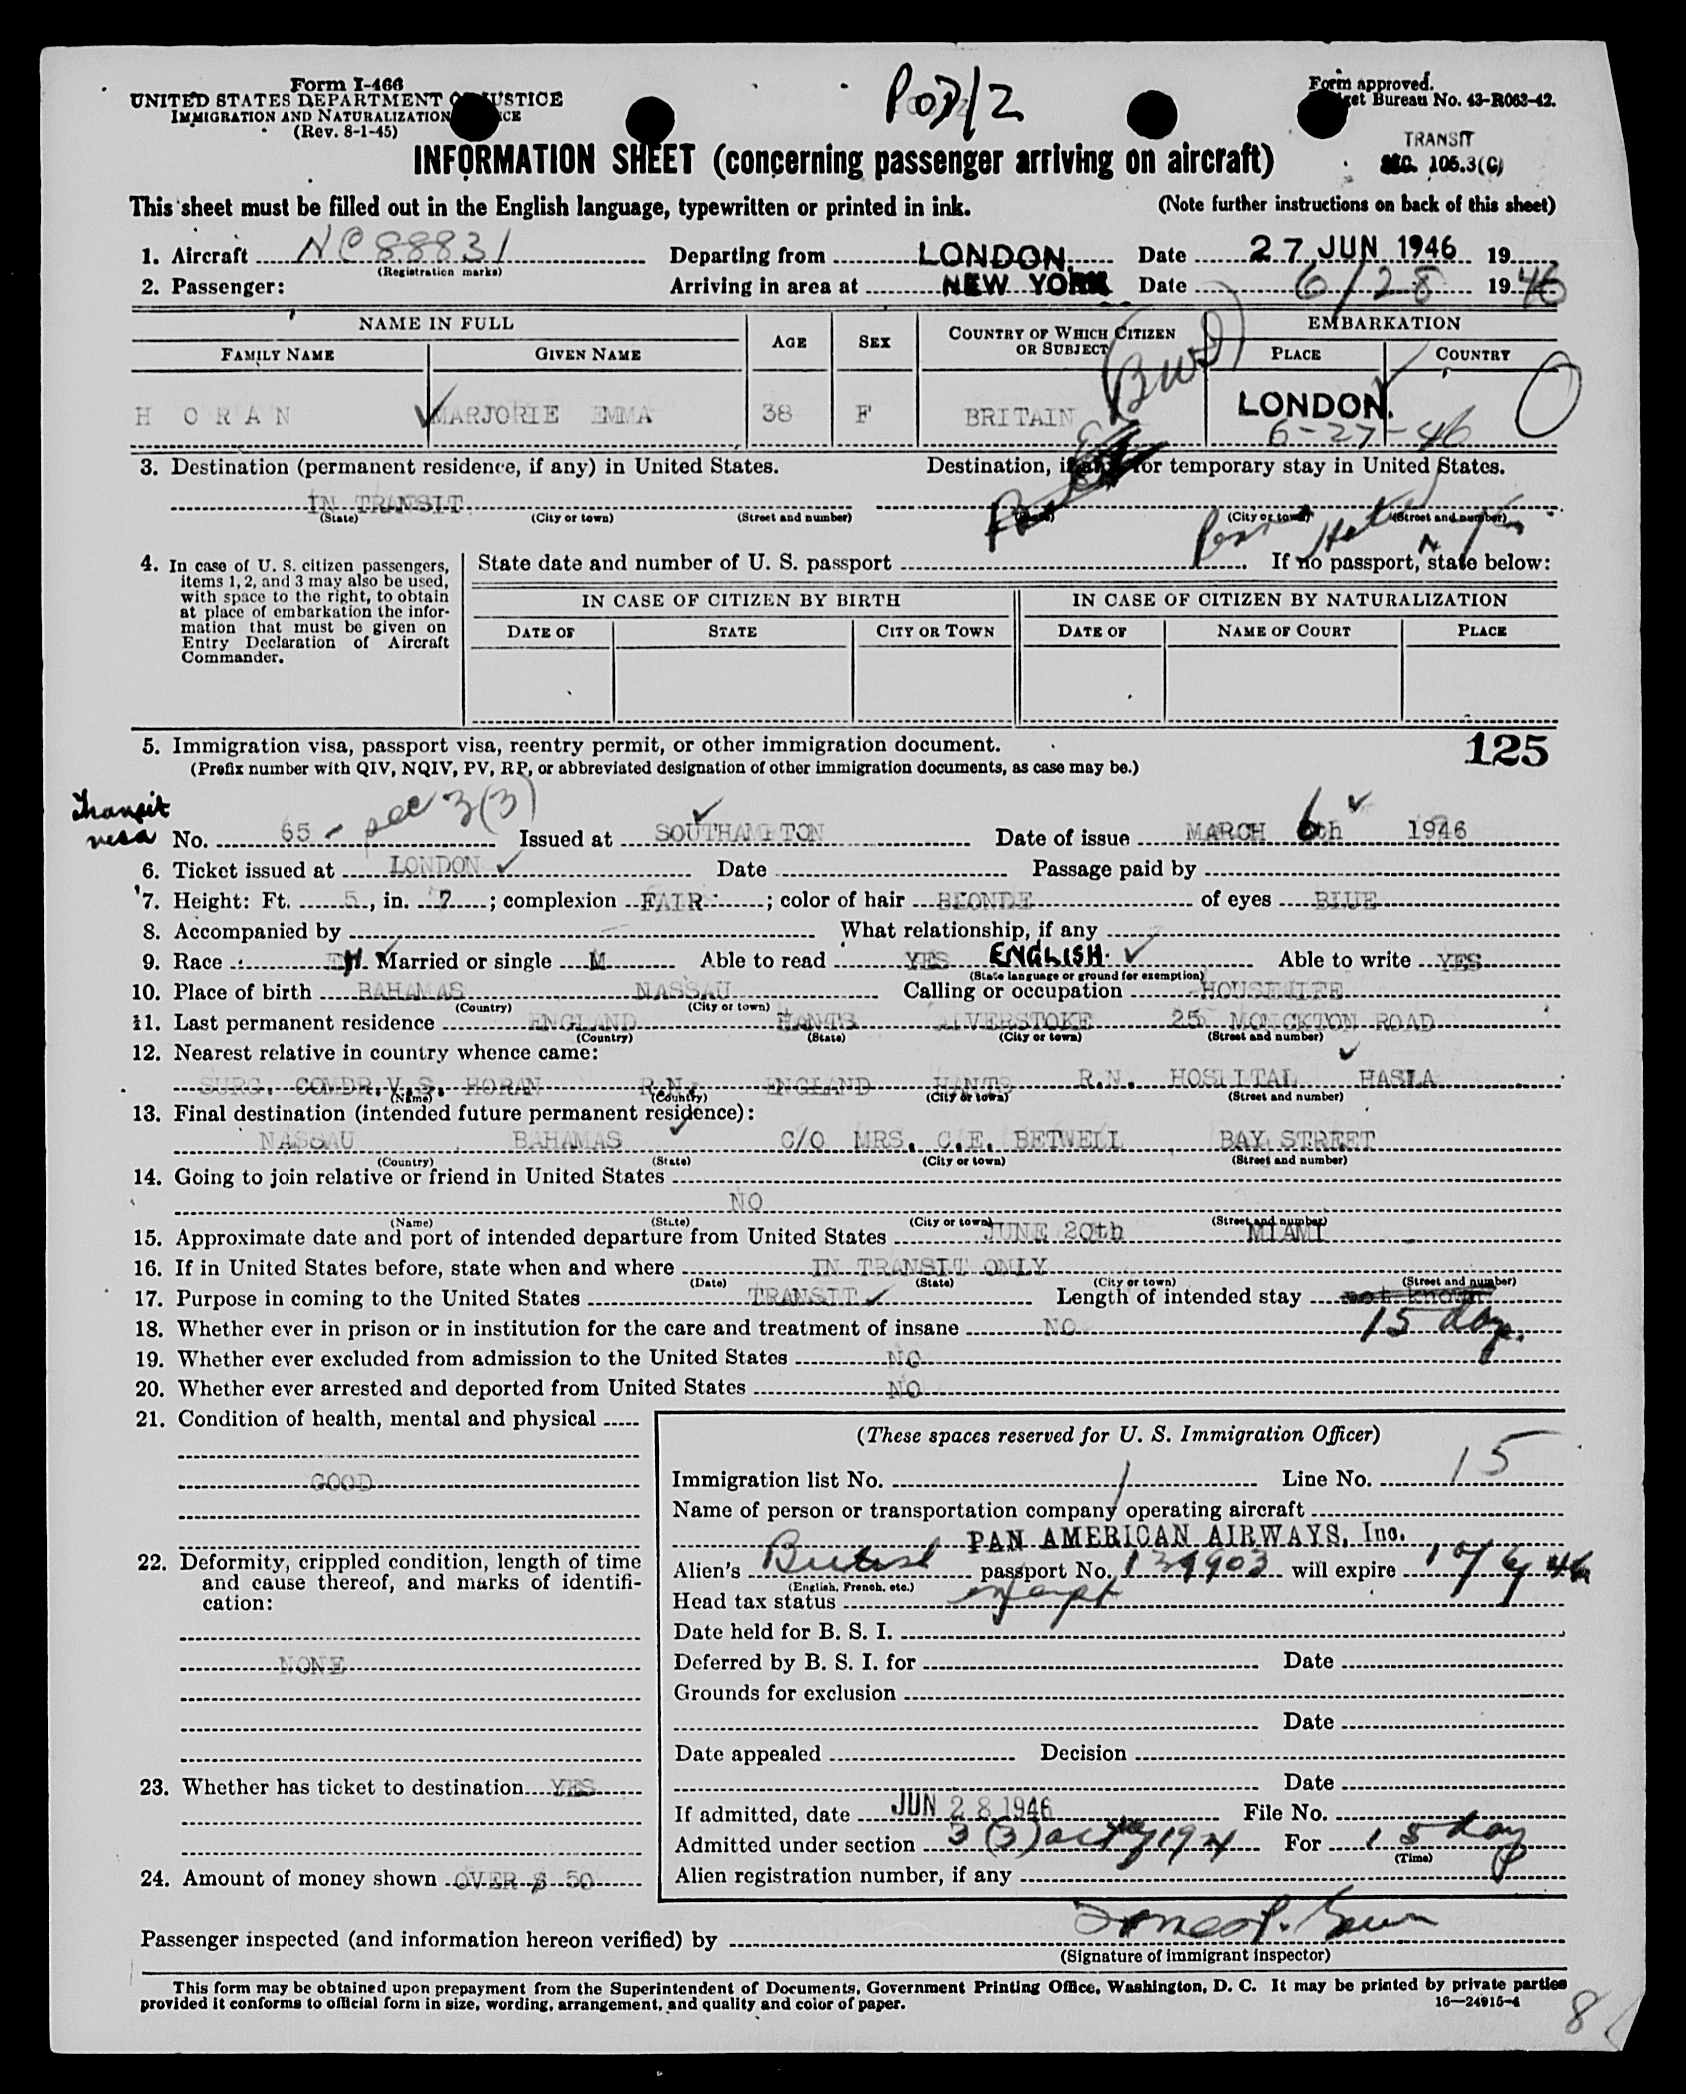 Form I-466
UNITED STATES DEPARTMENT OF JUSTICE
IMMIGRATION AND NATURALIZATION
(Rev. 8-1-45)
Form approved.
Bureau No. 43-R063-42.
TRANSIT
SEC. 105.3(C)
INFORMATION SHEET (concerning passenger arriving on aircraft)
This sheet must be filled out in the English language, typewritten or printed in ink. (Note further instructions on back of this sheet)
1. Aircraft NC 88831 Departing from LONDON. Date 27 JUN 1946 19
(Registration marks)
2. Passenger: Arriving in area at NEW YORK Date 6/28 1946
NAME IN FULL AGE SEX COUNTRY OF WHICH CITIZEN OR SUBJECT EMBARKATION
FAMILY NAME GIVEN NAME PLACE COUNTRY
(BWI)
HORAN MARJORIE EMMA 38 F BRITAIN LONDON. O
6-27-46
3. Destination (permanent residence, if any) in United States. Destination, if any, for temporary stay in United States.
IN TRANSIT
(State) (City or town) (Street and number) (State) (City or town) (Street and number)
4. In case of U. S. citizen passengers, items 1, 2, and 3 may also be used, with space to the right, to obtain at place of embarkation the information that must be given on Entry Declaration of Aircraft Commander.
State date and number of U. S. passport If no passport, state below:
IN CASE OF CITIZEN BY BIRTH IN CASE OF CITIZEN BY NATURALIZATION
DATE OF STATE CITY OR TOWN DATE OF NAME OF COURT PLACE
5. Immigration visa, passport visa, reentry permit, or other immigration document. 125
(Prefix number with QIV, NQIV, PV, RP, or abbreviated designation of other immigration documents, as case may be.)
Transit visa No. 65 - sec 3(3) Issued at SOUTHAMPTON Date of issue MARCH 6th 1946
6. Ticket issued at LONDON Date Passage paid by
7. Height: Ft. 5, in. 7; complexion FAIR; color of hair BLONDE of eyes BLUE
8. Accompanied by What relationship, if any
9. Race Married or single M Able to read YES ENGLISH. Able to write YES
(State language or ground for exemption)
10. Place of birth BAHAMAS NASSAU Calling or occupation HOUSEWIFE
(Country) (City or town)
11. Last permanent residence ENGLAND HANTS ALVERSTOKE 25 MONCKTON ROAD
(Country) (State) (City or town) (Street and number)
12. Nearest relative in country whence came:
SURG. COMDR. V.S. HORAN R.N. ENGLAND HANTS R.N. HOSPITAL HASLA
(Name) (Country) (City or town) (Street and number)
13. Final destination (intended future permanent residence):
NASSAU BAHAMAS C/O MRS. C.E. BETWELL BAY STREET
(Country) (State) (City or town) (Street and number)
14. Going to join relative or friend in United States
NO
(Name) (State) (City or town) (Street and number)
15. Approximate date and port of intended departure from United States JUNE 20th MIAMI
16. If in United States before, state when and where IN TRANSIT ONLY
(Date) (State) (City or town) (Street and number)
17. Purpose in coming to the United States TRANSIT Length of intended stay not known
15 days.
18. Whether ever in prison or in institution for the care and treatment of insane NO
19. Whether ever excluded from admission to the United States NO
20. Whether ever arrested and deported from United States NO
21. Condition of health, mental and physical
GOOD
22. Deformity, crippled condition, length of time and cause thereof, and marks of identification:
NONE
23. Whether has ticket to destination YES
24. Amount of money shown OVER $ 50
(These spaces reserved for U. S. Immigration Officer)
Immigration list No. 1 Line No. 15
Name of person or transportation company operating aircraft
PAN AMERICAN AIRWAYS, Inc.
Alien's British passport No. 139903 will expire
(English, French, etc.)
Head tax status exempt
Date held for B. S. I.
Deferred by B. S. I. for Date
Grounds for exclusion
Date
Date appealed Decision
Date
If admitted, date JUN 28 1946 File No.
Admitted under section 3(3) act 1924 For 15 days
(Time)
Alien registration number, if any
Passenger inspected (and information hereon verified) by
(Signature of immigrant inspector)
This form may be obtained upon prepayment from the Superintendent of Documents, Government Printing Office, Washington, D. C. It may be printed by private parties
provided it conforms to official form in size, wording, arrangement, and quality and color of paper. 16—24915-4
8